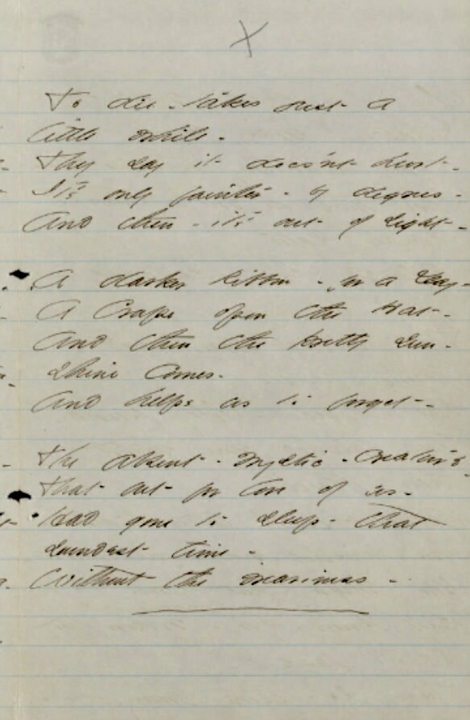 X
To die - takes just a
little while -
They say it does'nt hurt -
It's only fainter - by degrees -
And then - it's out of sight -
A darker Ribbon - for a Day -
A Crape upon the Hat -
And then the pretty sun-
shine comes -
And helps us to forget -
The absent - mystic - creature -
That but for love of us -
Had gone to sleep - that
soundest time -
Without the weariness -